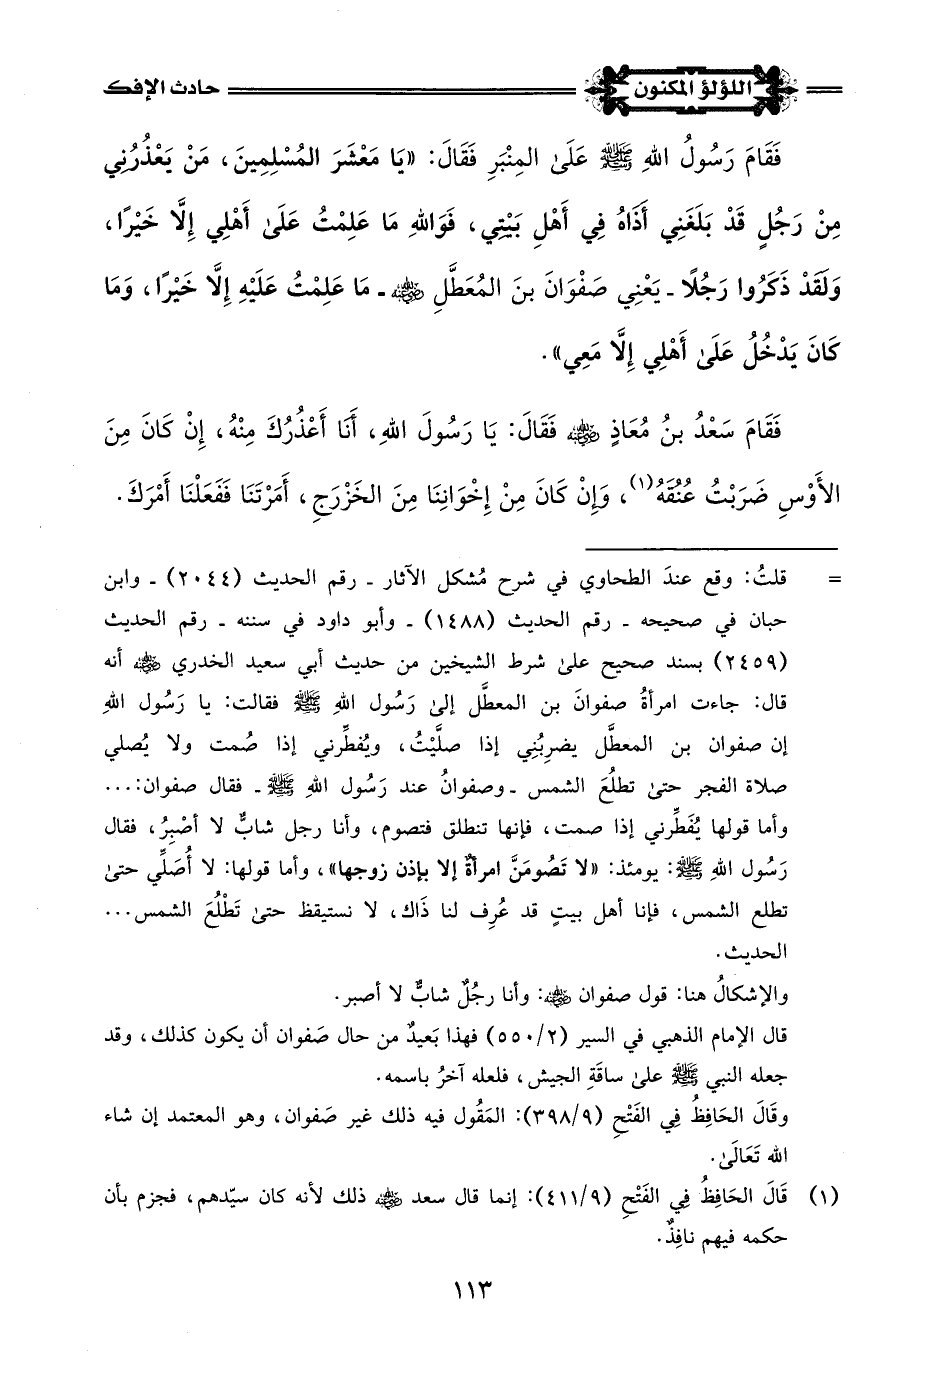 اللؤلؤ المكنون حادث الإفك
فَقَامَ رَسُولُ اللهِ ﷺ عَلَىٰ المِنْبَرِ فَقَالَ: «يَا مَعْشَرَ المُسْلِمِينَ، مَنْ يَعْذُرُنِي
مِنْ رَجُلٍ قَدْ بَلَغَنِي أَذَاهُ فِي أَهْلِ بَيْتِي، فَوَاللهِ مَا عَلِمْتُ عَلَىٰ أَهْلِي إِلَّا خَيْرًا،
وَلَقَدْ ذَكَرُوا رَجُلًا ـ يَعْنِي صَفْوَانَ بنَ المُعَطَّلِ رضي الله عنه ـ مَا عَلِمْتُ عَلَيْهِ إِلَّا خَيْرًا، وَمَا
كَانَ يَدْخُلُ عَلَىٰ أَهْلِي إِلَّا مَعِي».
فَقَامَ سَعْدُ بنُ مُعَاذٍ رضي الله عنه فَقَالَ: يَا رَسُولَ اللهِ، أَنَا أَعْذُرُكَ مِنْهُ، إِنْ كَانَ مِنَ
الأَوْسِ ضَرَبْتُ عُنُقَهُ(١)، وَإِنْ كَانَ مِنْ إِخْوَانِنَا مِنَ الخَزْرَجِ، أَمَرْتَنَا فَفَعَلْنَا أَمْرَكَ.
= قلتُ: وقع عندَ الطحاوي في شرح مُشكل الآثار ـ رقم الحديث (٢٠٤٤) ـ وابن
حبان في صحيحه ـ رقم الحديث (١٤٨٨) ـ وأبو داود في سننه ـ رقم الحديث
(٢٤٥٩) بسند صحيح علىٰ شرط الشيخين من حديث أبي سعيد الخدري رضي الله عنه أنه
قال: جاءت امرأةُ صفوانَ بن المعطَّل إلىٰ رَسُول اللهِ ﷺ فقالت: يا رَسُول اللهِ
إن صفوان بن المعطَّل يضرِبُنِي إذا صلَّيْتُ، ويُفطِّرني إذا صُمت ولا يُصلي
صلاة الفجر حتىٰ تطلُعَ الشمس ـ وصفوانُ عند رَسُول اللهِ ﷺ ـ فقال صفوان:...
وأما قولها يُفَطِّرني إذا صمت، فإنها تنطلق فتصوم، وأنا رجل شابٌّ لا أصْبِرُ، فقال
رَسُول اللهِ ﷺ: يومئذ: «لا تَصُومَنَّ امرأةٌ إلا بإذن زوجها»، وأما قولها: لا أُصَلِّي حتىٰ
تطلع الشمس، فإنا أهل بيتٍ قد عُرِف لنا ذَاك، لا نستيقظ حتىٰ تَطْلُعَ الشمس...
الحديث.
والإشكالُ هنا: قول صفوان رضي الله عنه: وأنا رجُلٌ شابٌّ لا أصبر.
قال الإمام الذهبي في السير (٢/ ٥٥٠) فهذا بَعيدٌ من حال صَفوان أن يكون كذلك، وقد
جعله النبي ﷺ علىٰ ساقَةِ الجيش، فلعله آخرُ باسمه.
وقَالَ الحَافِظُ فِي الفَتْحِ (٩/ ٣٩٨): المَقُول فيه ذلك غير صَفوان، وهو المعتمد إن شاء
الله تَعَالَىٰ.
(١) قَالَ الحَافِظُ فِي الفَتْحِ (٩/ ٤١١): إنما قال سعد رضي الله عنه ذلك لأنه كان سيّدهم، فجزم بأن
حكمه فيهم نافِذٌ.
١١٣